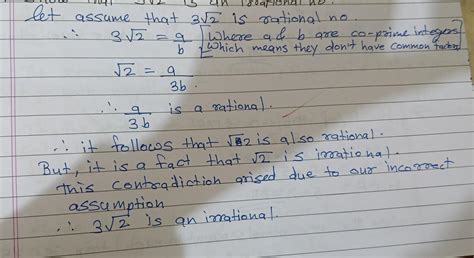 that 3√2 is an irrational no.
let assume that 3√2 is rational no.
∴ 3√2 = a/b [Where a & b are co-prime integers
Which means they don't have common factor]
√2 = a/3b
∴ a/3b is a rational.
∴ it follows that √2 is also rational.
But, it is a fact that √2 is irrational.
This contradiction arised due to our incorrect
assumption
∴ 3√2 is an irrational.